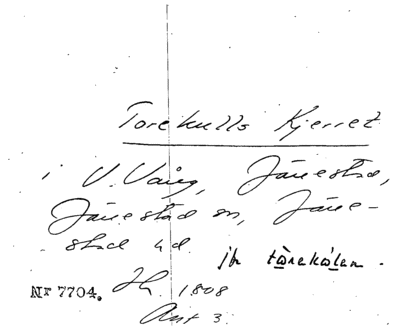 Torekulls Kjerret
i V. Vång, Jänestad,
Jänestad sn, Jäne-
stad hd.
jfr tòrekọ̀lan.
Nr 7704. Jh. 1808
Akt 3.